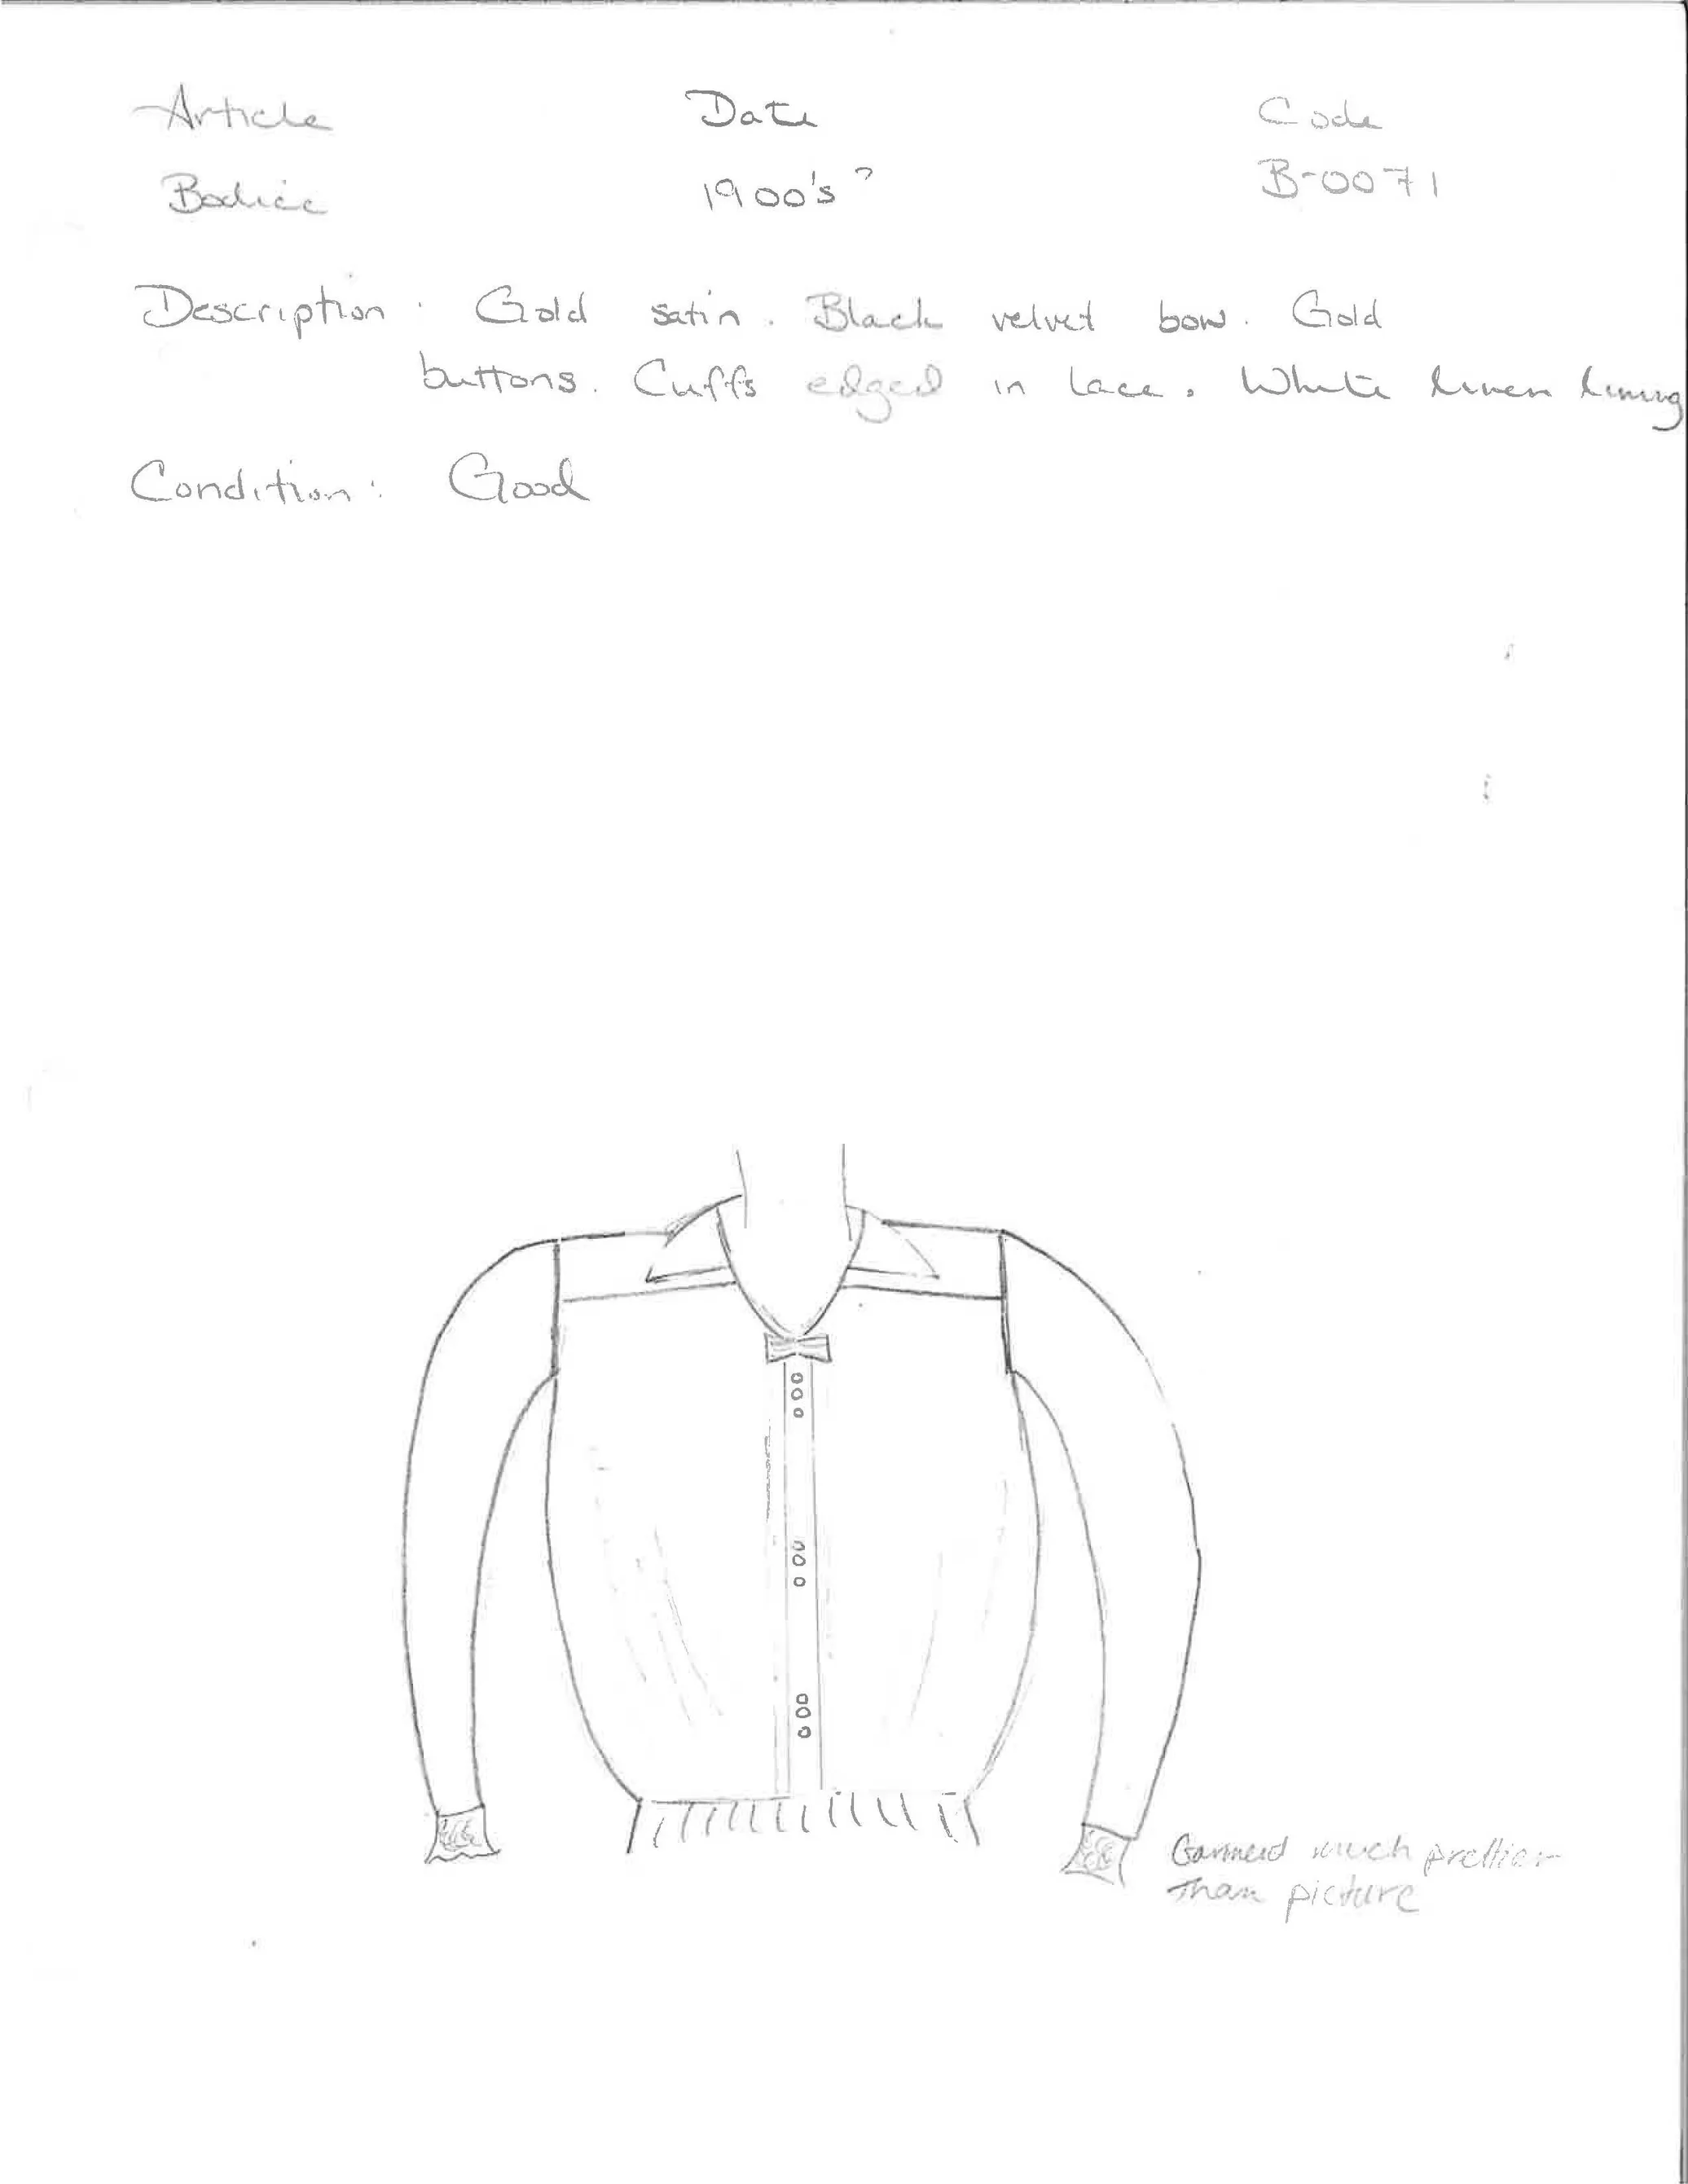 Article Date Code
Bodice 1900's ? B-0071
Description : Gold satin. Black velvet bow. Gold
buttons. Cuffs edged in lace. White linen lining
Condition: Good
Garment much prettier
than picture